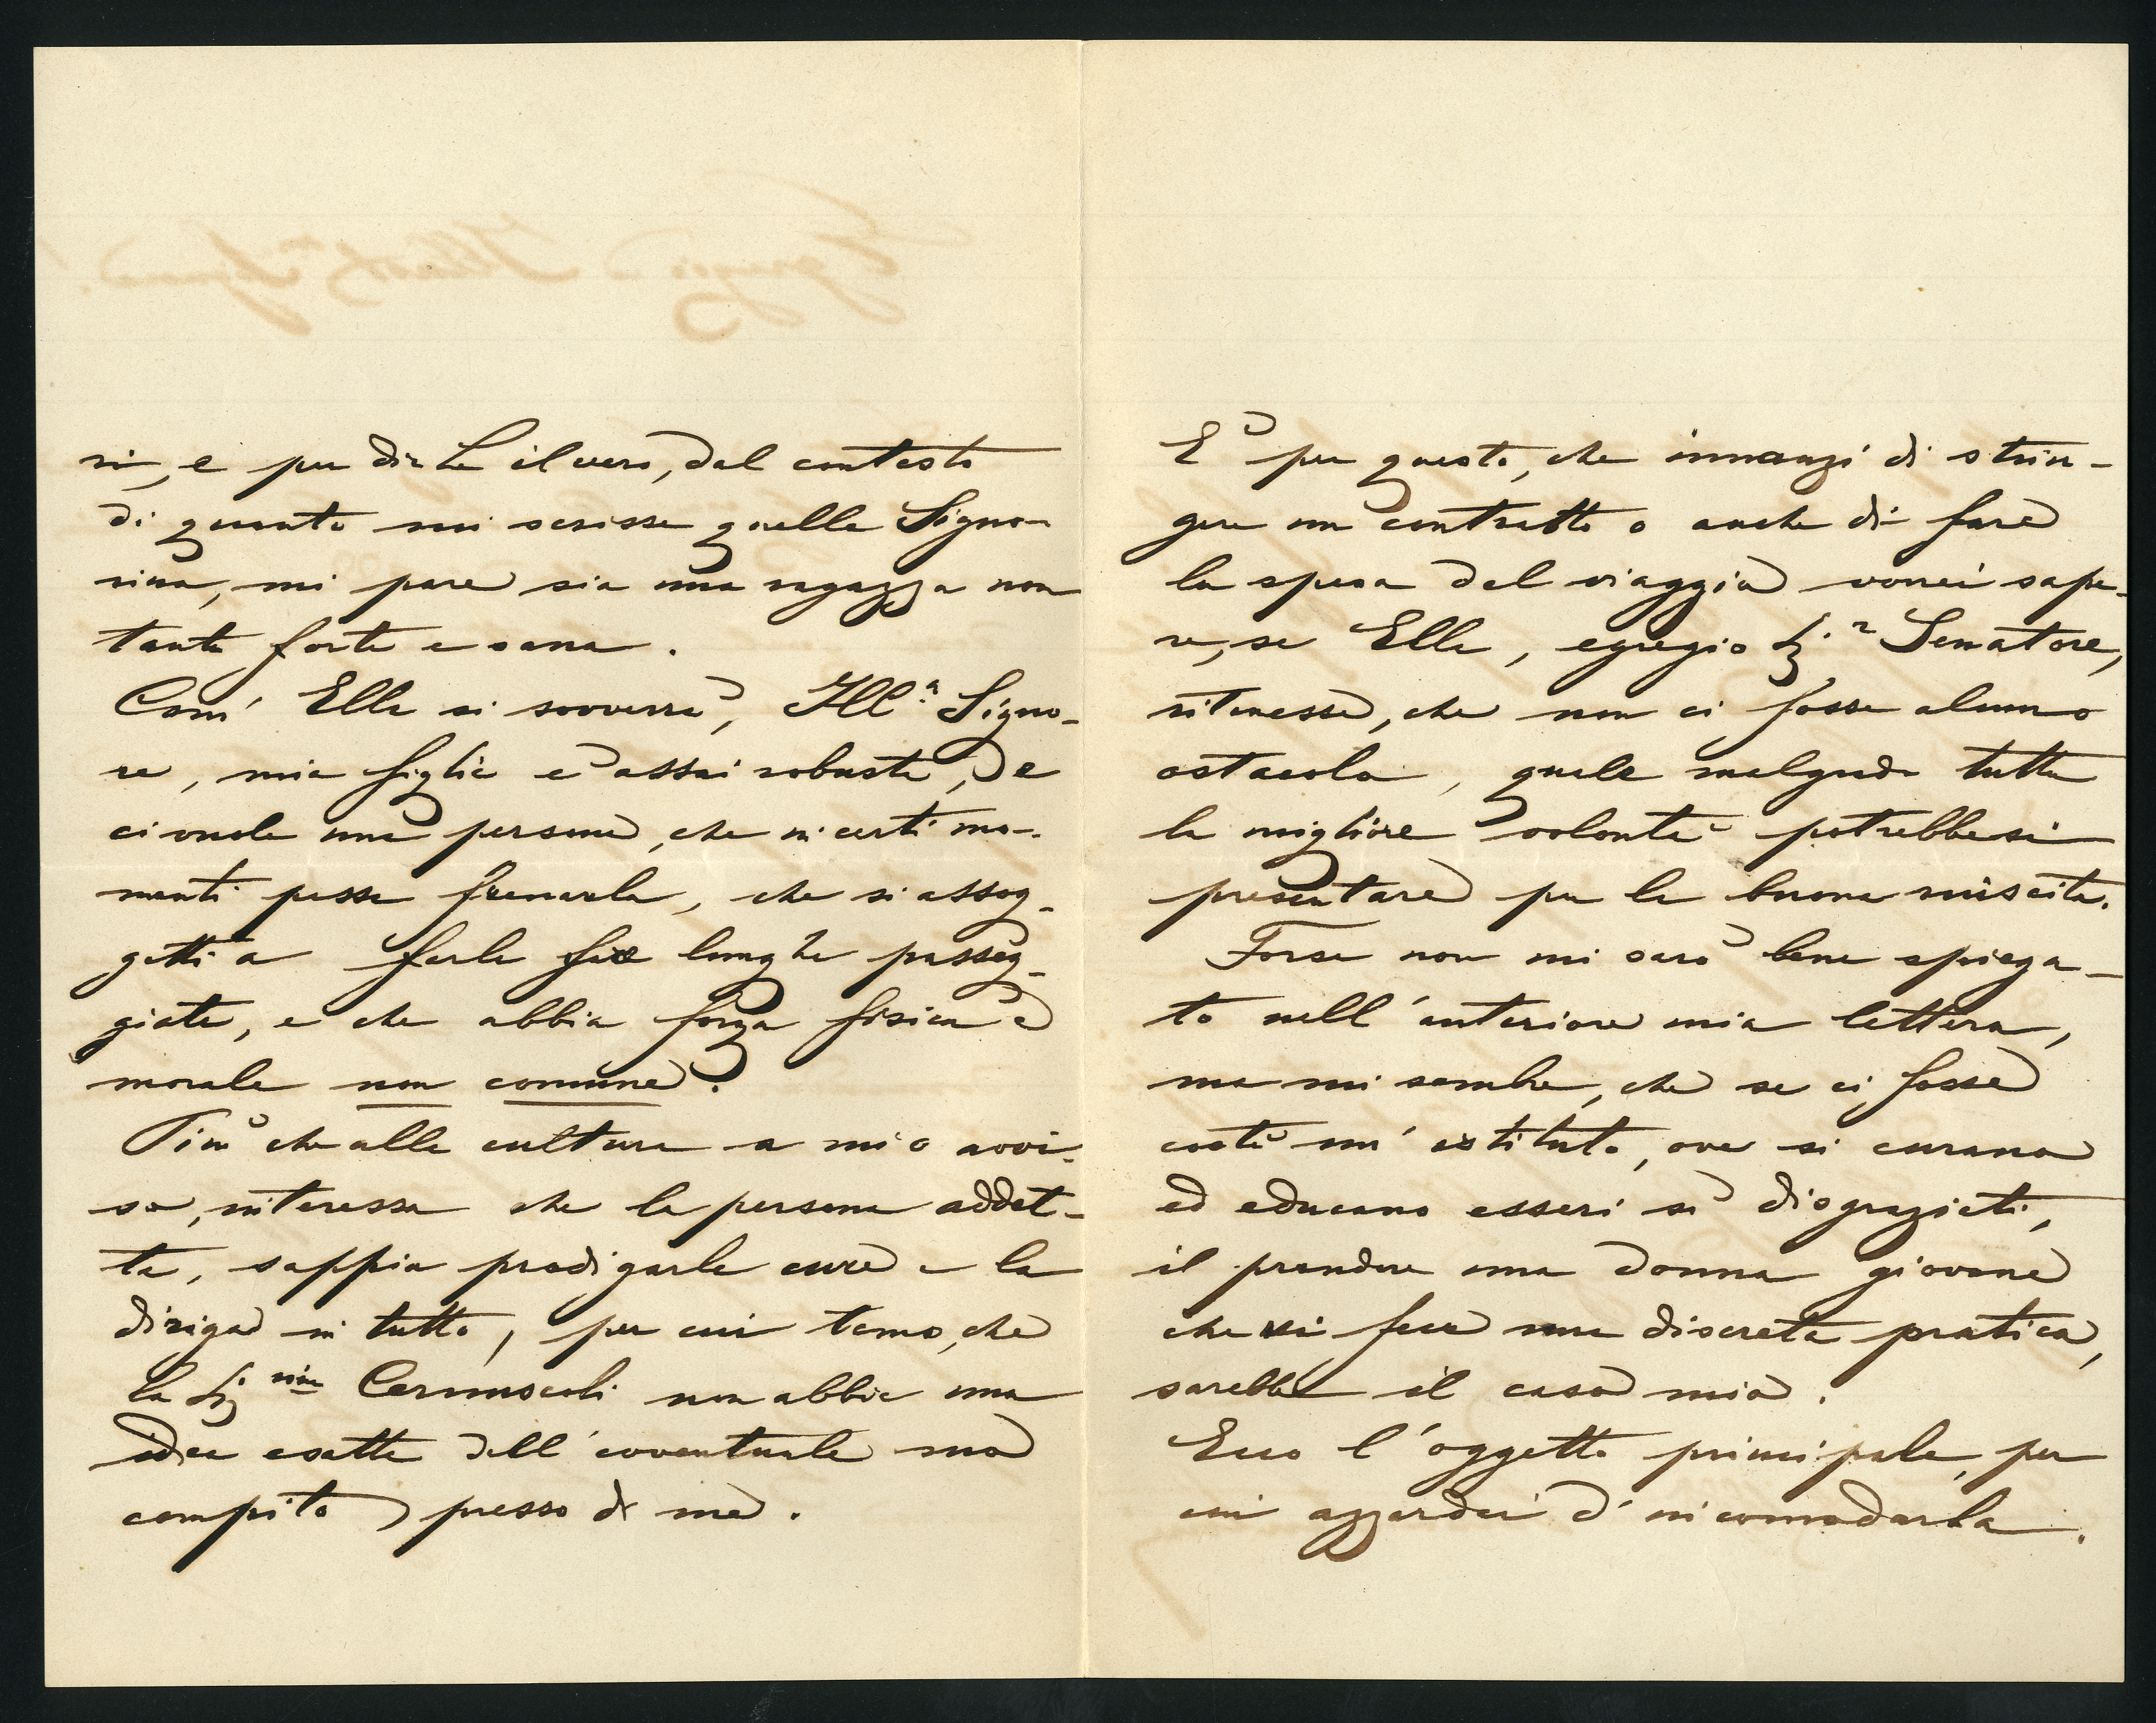 ni, e per dirLe il vero, dal contesto
di quanto mi scrisse quella Signo-
rina, mi pare sia una ragazza non
tanto forte e sana.
Com' Ella si sovverrà, Ill.ᵃ Signo-
re, mia figlia è assai robusta, e
ci vuole una persona, che in certi mo-
menti possa frenarla, che si assog-
getti a farle far lunghe passeg-
giate, e che abbia forza fisica e
morale non comune.
Più che alla cultura a mio avvi-
so, interessa che la persona addet-
ta, sappia prodigarle cure e la
diriga in tutto, per cui temo, che
la Sigⁿⁱⁿᵃ Cernuscoli non abbia una
idea esatta dell' eventuale suo
compito presso di me.
E' per questo, che innanzi di strin-
gere un contratto o anche di fare
la spesa del viaggio vorrei sape-
re, se Ella, egregio Sigʳ Senatore,
ritenesse, che non ci fosse alcuno
ostacolo, quale malgrado tutta
la migliore volontà potrebbesi
presentare per la buona riuscita.
Forse non mi sarò bene spiega-
to nell' anteriore mia lettera,
ma mi sembra, che se ci fosse
costì un' istituto, ove si curano
ed educano esseri sì disgraziati,
il prendere una donna giovane
che vi fece una discreta pratica,
sarebbe il caso mio.
Ecco l' oggetto principale, per
cui azzardai d' incomodarla.
Egregio Illustᵐᵒ Signore!